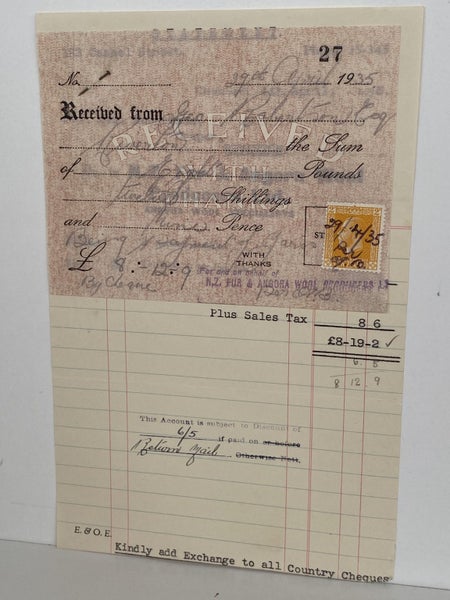 STATEMENT.
27
No. 1 29th April 1935
Received from Geo. Robertson Esq
RECEIVED
Riverton the Sum
of Eight Pounds
Twelve Shillings
and Nine Pence
Being payment of Yarn
WITH
THANKS
£ 8 -:- 12 : 9 For and on behalf of
N.Z. FUR & ANGORA WOOL PRODUCERS LT
By Cheque
ST
29/4/35
Plus Sales Tax 8 6
£8-19-2 ✓
6. 5
8 12. 9
This Account is subject to Discount of
6/5 if paid on or before
Return Mail. Otherwise Nett.
E. & O. E.
Kindly add Exchange to all Country Cheques